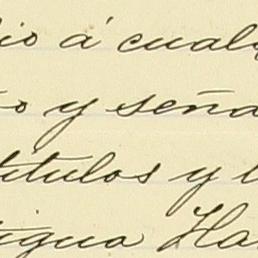 io á cual
o y seña
titulos y l
igua Ha